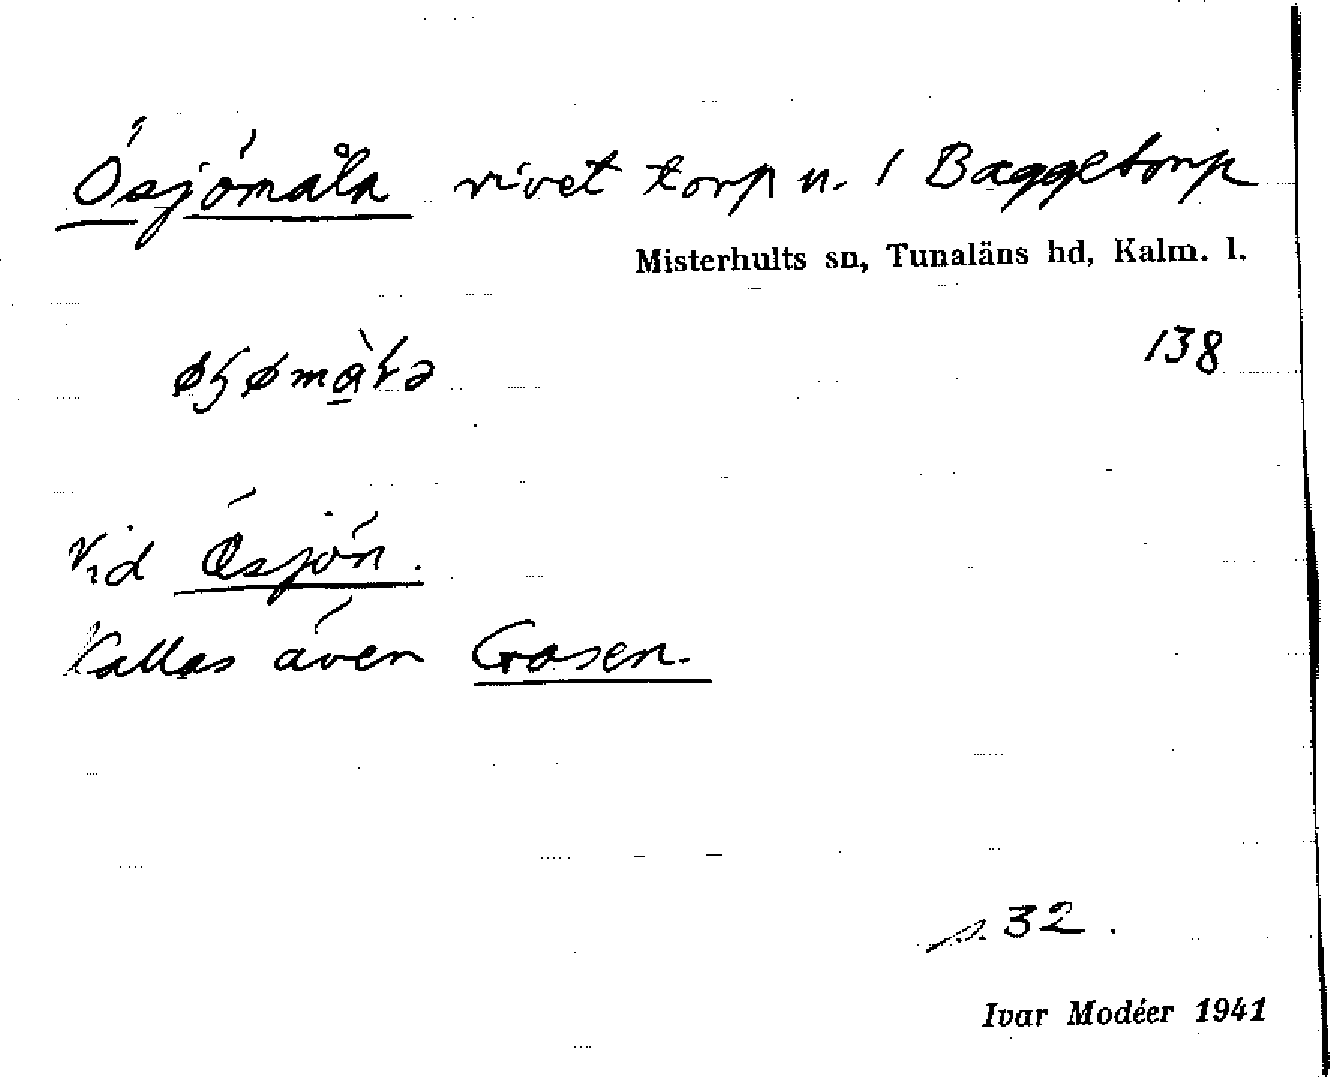 Ösjömåla rivet torp u. / Baggetorp
Misterhults sn, Tunaläns hd, Kalm. l.
138
Vid Ösjön.
Kallas även Gåsen.
p. 32.
Ivar Modéer 1941